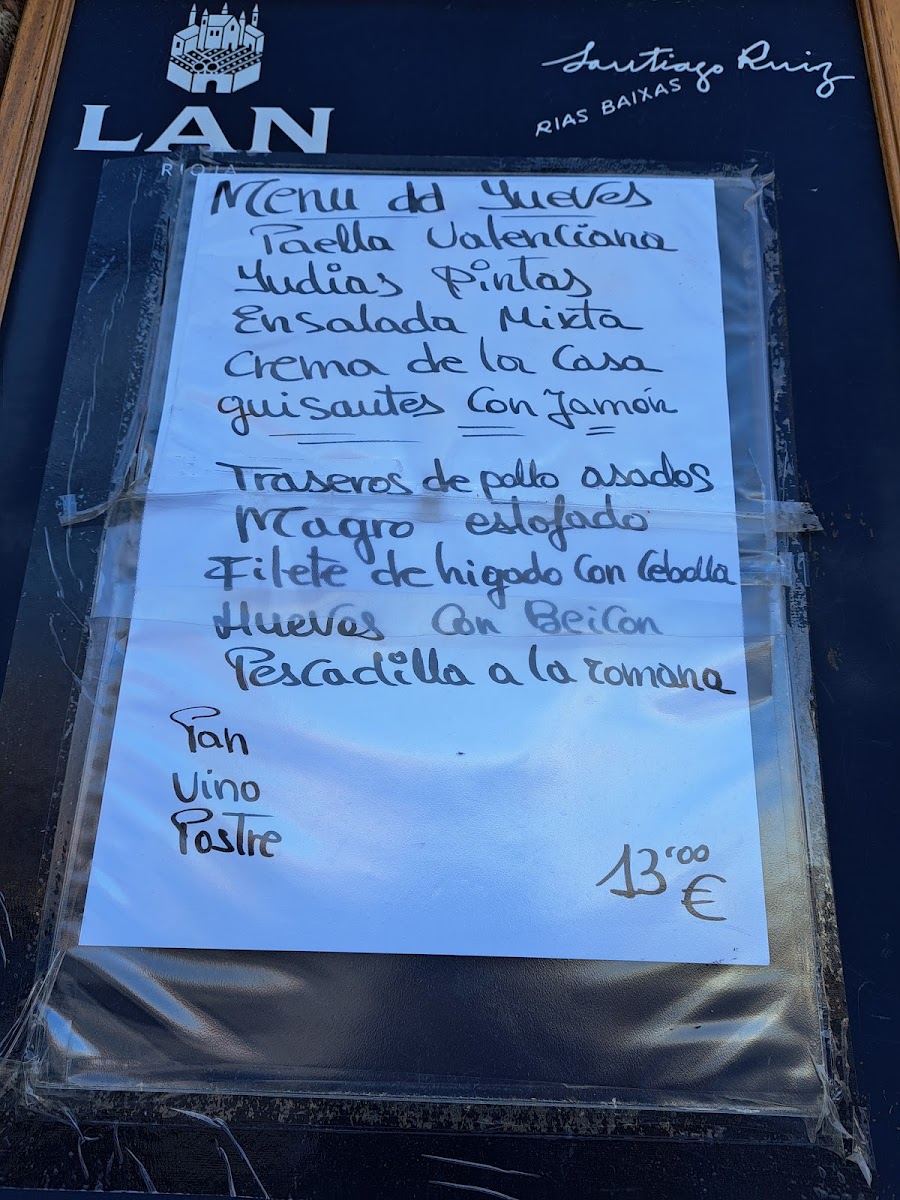 LAN
RIOJA
Santiago Ruiz
RIAS BAIXAS
Menu del Jueves
Paella Valenciana
Judias Pintas
Ensalada Mixta
Crema de la Casa
guisantes Con Jamón
Traseros de pollo asados
Magro estofado
Filete de higado Con Cebolla
Huevos Con Beicon
Pescadilla a la romana
Pan
Vino
Postre
13'00
€